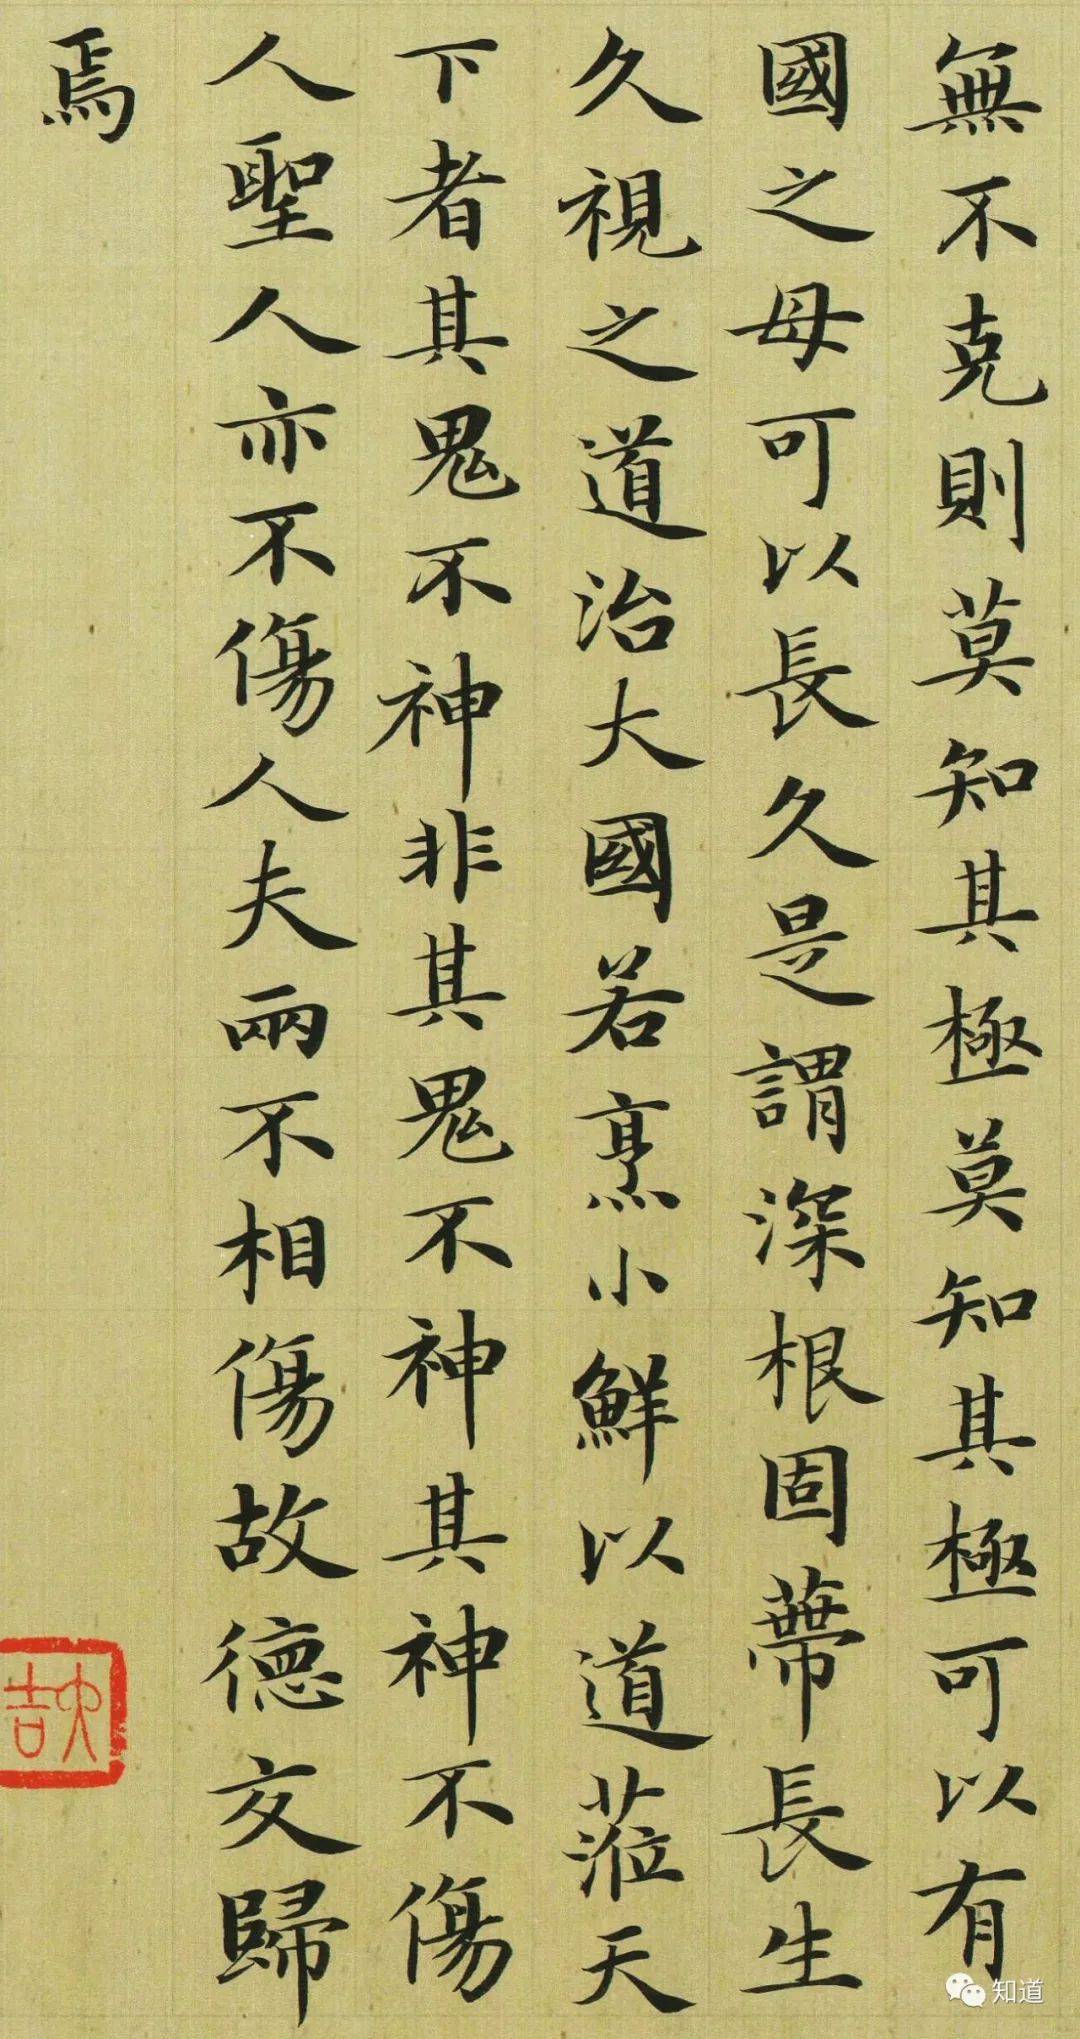 無不克則莫知其極莫知其極可以有
國之母可以長久是謂深根固蔕長生
久視之道治大國若烹小鮮以道蒞天
下者其鬼不神非其鬼不神其神不傷
人聖人亦不傷人夫兩不相傷故德交歸
焉
知道